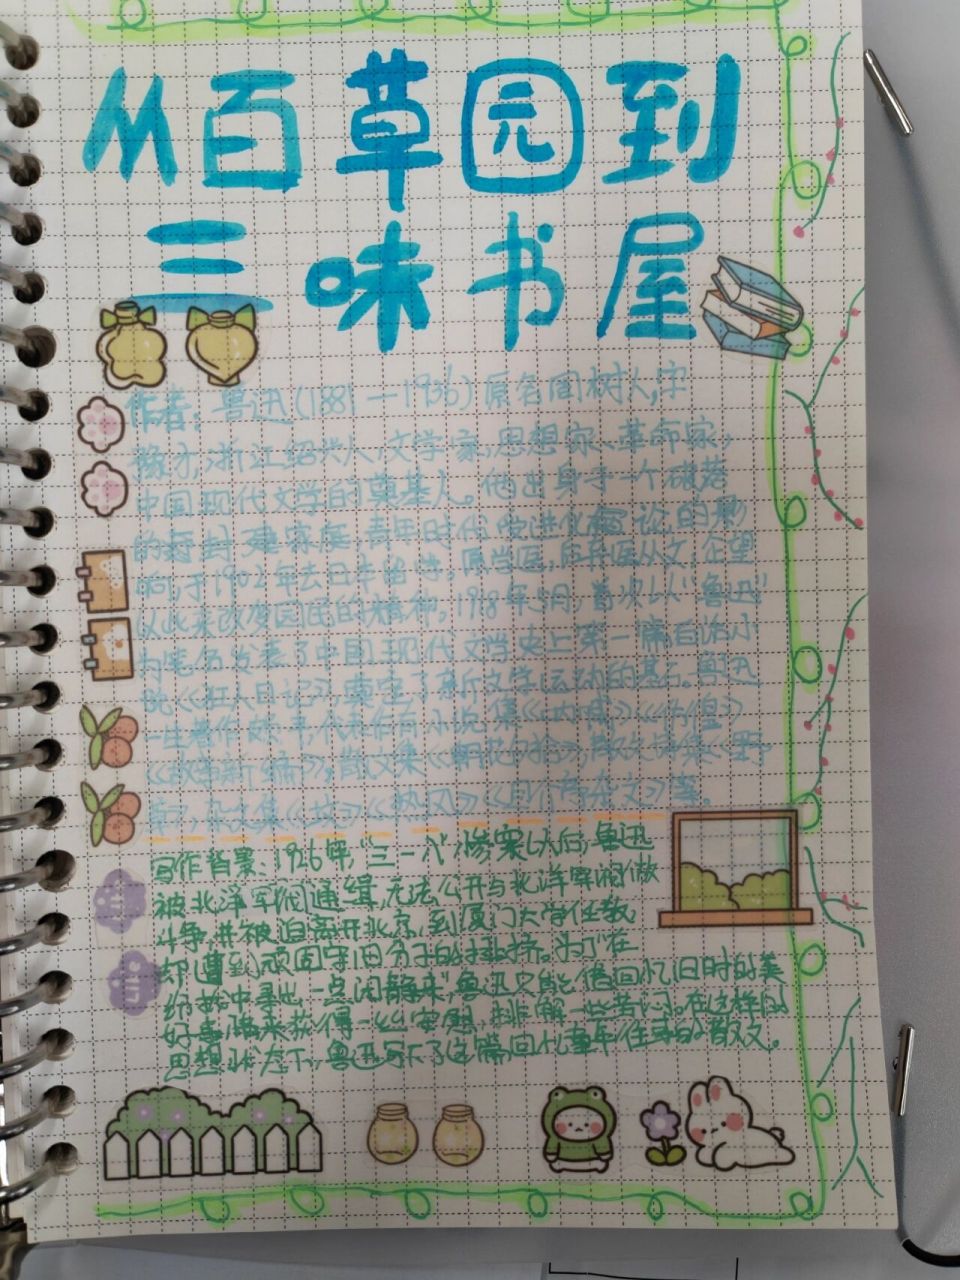 从百草园到
三味书屋
作者：鲁迅(1881—1936)原名周树人，字
豫才，浙江绍兴人，文学家，思想家、革命家，
中国现代文学的奠基人。他出身于一个破落
的封建家庭，青年时代受进化论的影
响，于1902年去日本留学，原学医，后弃医从文，企望
以此来改变国民的精神，1918年5月，首次以“鲁迅”
为笔名发表了中国现代文学史上第一篇白话小
说《狂人日记》，奠定了新文学运动的基石。鲁迅
一生著作颇丰，代表作有小说集《呐喊》《彷徨》
《故事新编》，散文集《朝花夕拾》，散文诗集《野
草》，杂文集《坟》《热风》《且介亭杂文》等。
写作背景：1926年，“三一八”惨案以后，鲁迅
被北洋军阀通缉，无法公开与北洋军阀做
斗争，并被迫离开北京，到厦门大学任教，
却遭到顽固守旧分子的排挤。为了在
纷扰中寻出一点闲静来，鲁迅只能借回忆旧时的美
好事情来获得一丝安慰，排解一些苦闷。在这样的
思想状态下，鲁迅写下了这篇回忆童年往事的散文。
Life
Life